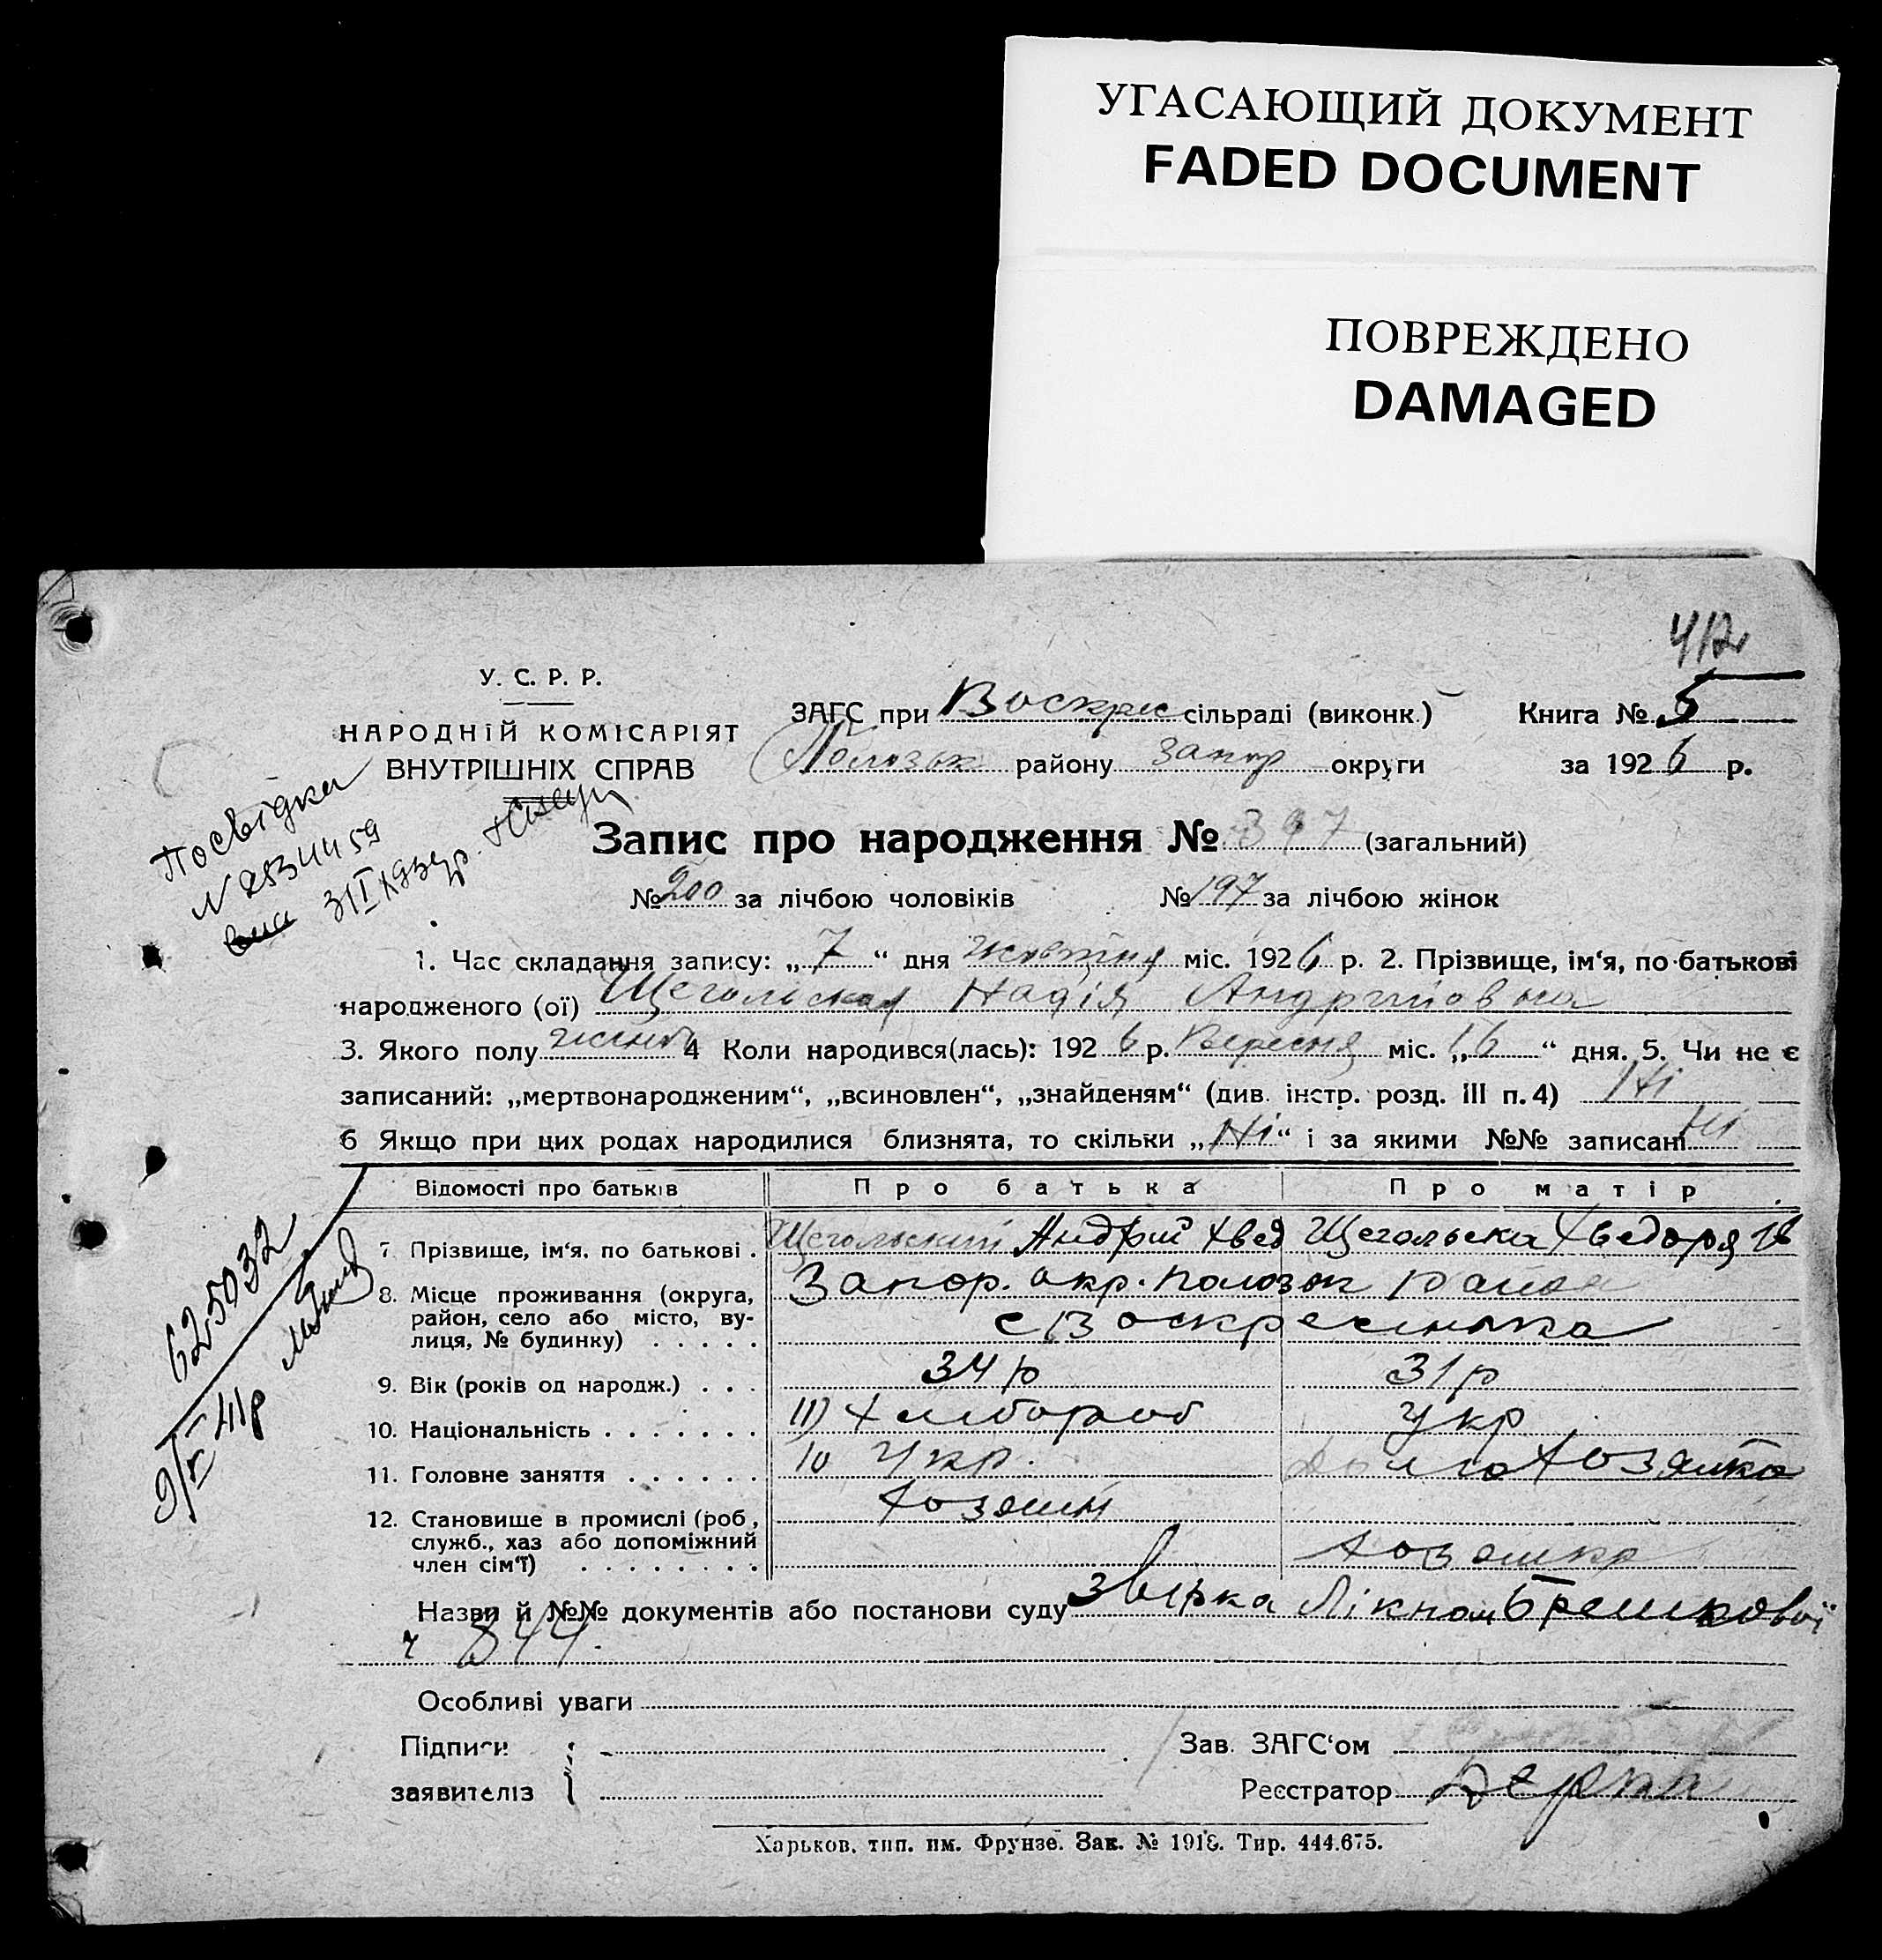 УГАСАЮЩИЙ ДОКУМЕНТ
FADED DOCUMENT
ПОВРЕЖДЕНО
DAMAGED
412
У. С. Р. Р.
НАРОДНІЙ КОМІСАРІЯТ
ВНУТРІШНІХ СПРАВ
ЗАГС при Воскрес сільраді (виконк.) Книга № 5
Полозьк району Запор округи за 1926 р.
Посвідка
N 2534459
31 I 1932р.
Запис про народження № 397 (загальний)
№ 200 за лічбою чоловіків № 197 за лічбою жінок
1. Час складання запису: „7“ дня жовтня міс. 1926 р. 2. Прізвище, ім‘я, по-батькові
народженого (ої) Щегольская Надія Андрийовна
3. Якого полу жіноч 4 Коли народився(лась): 1926 р. Вересня міс. „16“ дня. 5. Чи не є
записаний: „мертвонародженим“, „всиновлен“, „знайденям“ (див. інстр. розд. III п. 4) Ні
6 Якщо при цих родах народилися близнята, то скільки „Ні“ і за якими №№ записані Ні
Відомості про батьків Про батька Про матір
7. Прізвище, ім‘я, по батькові . Щегольский Андрий Хвед Щегольска Хведоря Ів
8. Місце проживання (округа, Запор. окр. Полозьк район
район, село або місто, ву- с Воскресенька
лиця, № будинку) . . . . .
9. Вік (років од народж.) . . . 34 р 31 р
10. Національність . . . . . . . 11) Хлибороб Укр
11. Головне заняття . . . . . . 10 Укр. Домохозяйка
12. Становище в промислі (роб., хозяин
служб., хаз або допоміжний хозяйка
член сім‘ї) . . . . . . . .
625032
9/V 41р
Назви й №№ документів або постанови суду Звірка Лікпом Брешкової
ч 844.
Особливі уваги
Підписи Зав. ЗАГС‘ом
заявителів Реєстратор
Харьков, тип. им. Фрунзе. Зак. № 1918. Тир. 444.675.